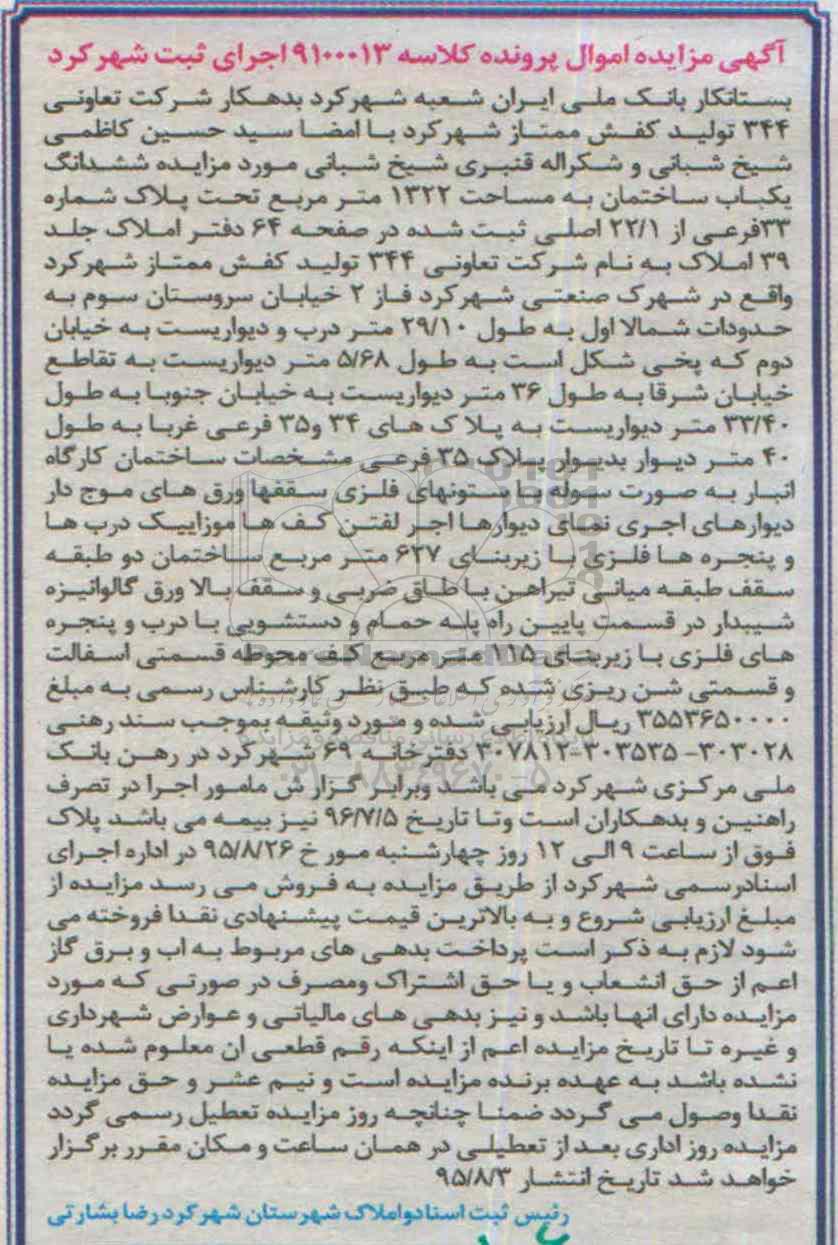 آگهی مزایده اموال پرونده کلاسه ۹۱۰۰۰۱۳ اجرای ثبت شهرکرد
بستانکار بانک ملی ایران شعبه شهرکرد بدهکار شرکت تعاونی
۳۴۴ تولید کفش ممتاز شهرکرد با امضا سید حسین کاظمی
شیخ شبانی و شکراله قنبری شیخ شبانی مورد مزایده ششدانگ
یکباب ساختمان به مساحت ۱۳۲۲ متر مربع تحت پلاک شماره
۳۳فرعی از ۲۲/۱ اصلی ثبت شده در صفحه ۶۴ دفتر املاک جلد
۳۹ املاک به نام شرکت تعاونی ۳۴۴ تولید کفش ممتاز شهرکرد
واقع در شهرک صنعتی شهرکرد فاز ۲ خیابان سروستان سوم به
حدودات شمالا اول به طول ۲۹/۱۰ متر درب و دیواریست به خیابان
دوم که پخی شکل است به طول ۵/۶۸ متر دیواریست به تقاطع
خیابان شرقا به طول ۳۶ متر دیواریست به خیابان جنوبا به طول
۳۳/۴۰ متر دیواریست به پلا ک های ۳۴ و۳۵ فرعی غربا به طول
۴۰ متر دیوار بدیوار پلاک ۳۵ فرعی مشخصات ساختمان کارگاه
انبار به صورت سوله با ستونهای فلزی سقفها ورق های موج دار
دیوارهای اجری نمای دیوارها اجر لفتن کف ها موزاییک درب ها
و پنجره ها فلزی با زیربنای ۶۲۷ متر مربع ساختمان دو طبقه
سقف طبقه میانی تیراهن با طاق ضربی و سقف بالا ورق گالوانیزه
شیبدار در قسمت پایین راه پله حمام و دستشویی با درب و پنجره
های فلزی با زیربنای ۱۱۵ متر مربع کف محوطه قسمتی اسفالت
و قسمتی شن ریزی شده که طبق نظر کارشناس رسمی به مبلغ
۳۵۵۳۶۵۰۰۰۰ ریال ارزیابی شده و مورد وثیقه بموجب سند رهنی
۳۰۳۰۲۸- ۳۰۳۵۳۵-۳۰۷۸۱۲ دفترخانه ۶۹ شهرکرد در رهن بانک
ملی مرکزی شهرکرد می باشد وبرابر گزارش مامور اجرا در تصرف
راهنین و بدهکاران است وتا تاریخ ۹۶/۷/۵ نیز بیمه می باشد پلاک
فوق از ساعت ۹ الی ۱۲ روز چهارشنبه مورخ ۹۵/۸/۲۶ در اداره اجرای
اسنادرسمی شهرکرد از طریق مزایده به فروش می رسد مزایده از
مبلغ ارزیابی شروع و به بالاترین قیمت پیشنهادی نقدا فروخته می
شود لازم به ذکر است پرداخت بدهی های مربوط به اب و برق گاز
اعم از حق انشعاب و یا حق اشتراک ومصرف در صورتی که مورد
مزایده دارای انها باشد و نیز بدهی های مالیاتی و عوارض شهرداری
و غیره تا تاریخ مزایده اعم از اینکه رقم قطعی ان معلوم شده یا
نشده باشد به عهده برنده مزایده است و نیم عشر و حق مزایده
نقدا وصول می گردد ضمنا چنانچه روز مزایده تعطیل رسمی گردد
مزایده روز اداری بعد از تعطیلی در همان ساعت و مکان مقرر برگزار
خواهد شد تاریخ انتشار ۹۵/۸/۳
رئیس ثبت اسنادواملاک شهرستان شهرکرد رضا بشارتی